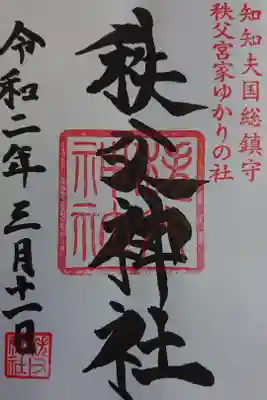 知知夫国総鎮守
秩父宮家ゆかりの社
秩父神社
令和二年三月十一日
秩父
神社